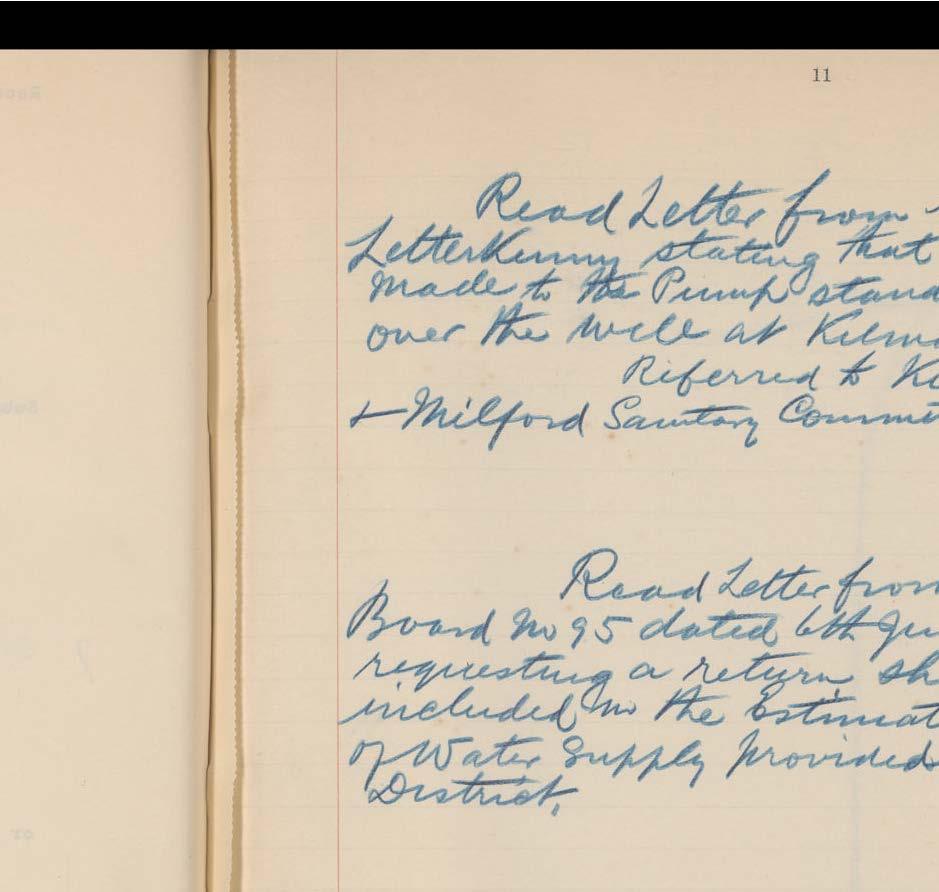 11
Read Letter from
Letterkenny stating that
made to the Pump stand
over the well at Kilm
Referred to K
+ Milford Sanitary Commit
Read Letter from
Board No 95 dated 6th Ju
requesting a return sh
included in the Estimat
of Water Supply provided
District.